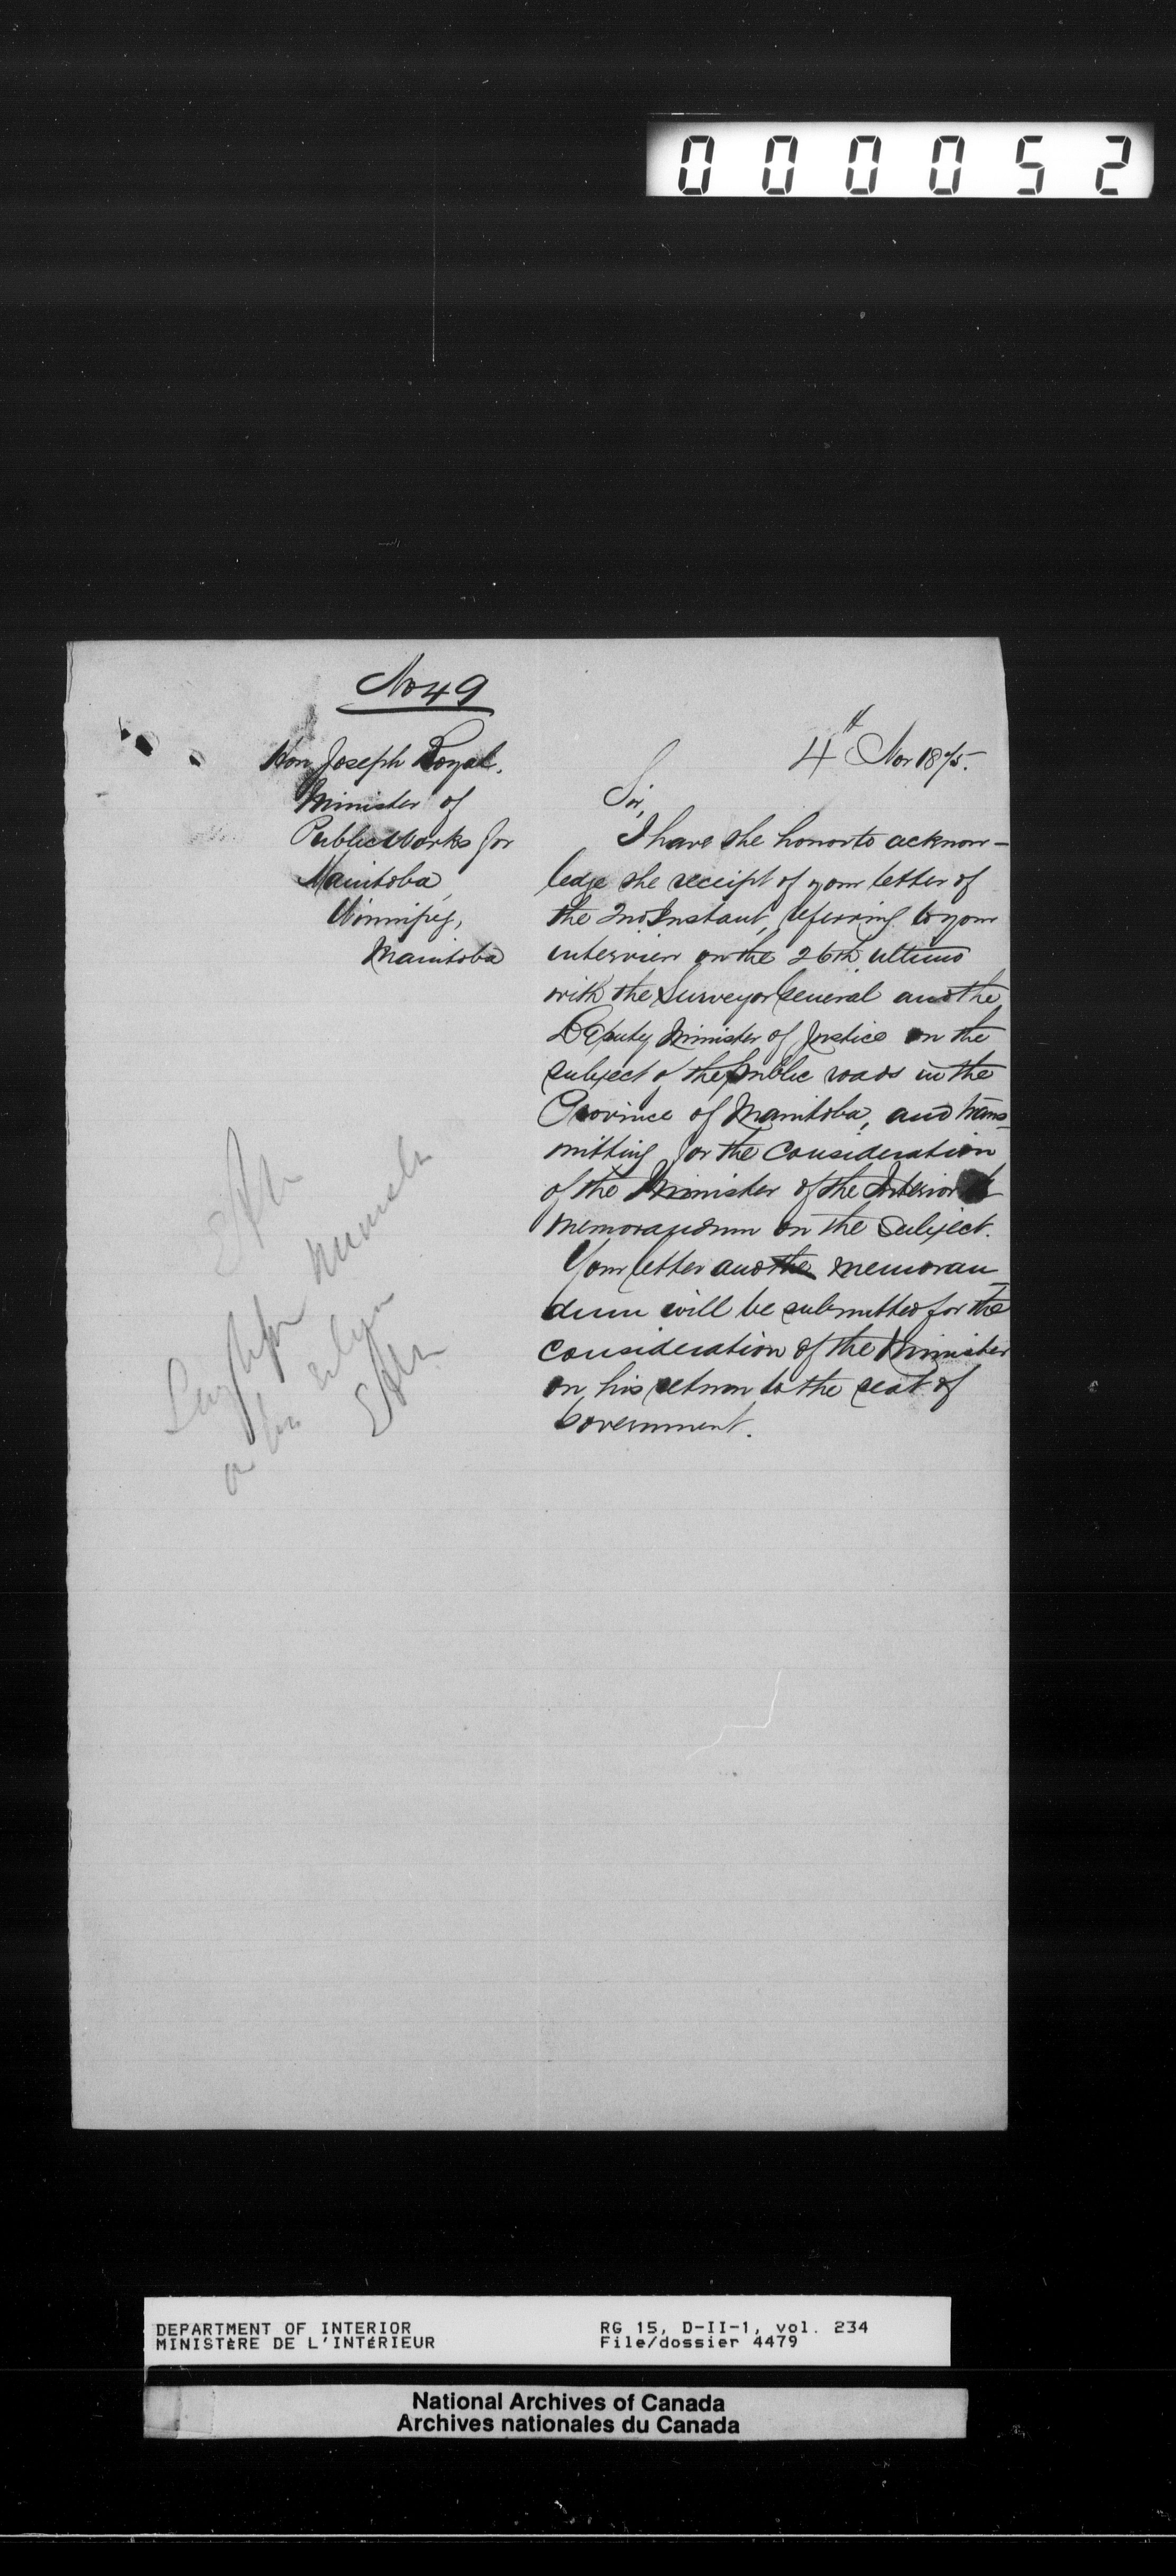 000052
No 49
Hon Joseph Royal.
Minister of
Public Works for
Manitoba
Winnipeg,
Manitoba
4th Nov 1875.
Sir,
I have the honor to acknow-
ledge the receipt of your letter of
the 2nd Instant, referring to your
interview on the 26th ultimo
with the Surveyor General and the
Deputy Minister of Justice on the
subject of the public roads in the
Province of Manitoba, and trans-
mitting for the Consideration
of the Minister of the Interior
memorandum on the subject.
Your letter and the memoran-
dum will be submitted for the
consideration of the Minister
on his return to the seat of
Government.
DEPARTMENT OF INTERIOR
MINISTÈRE DE L'INTÉRIEUR
RG 15, D-II-1, vol. 234
File/dossier 4479
National Archives of Canada
Archives nationales du Canada